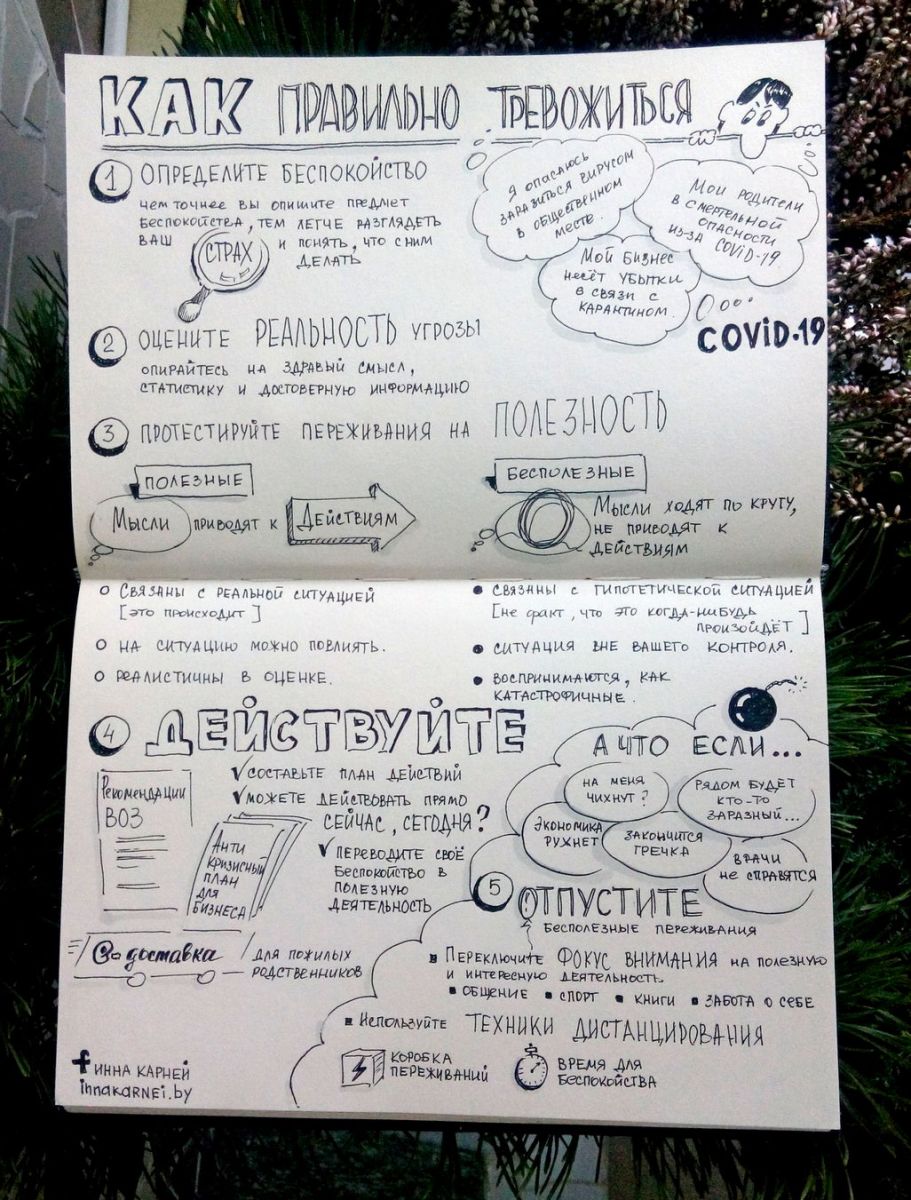 КАК ПРАВИЛЬНО ТРЕВОЖИТЬСЯ
1 ОПРЕДЕЛИТЕ БЕСПОКОЙСТВО
чем точнее вы опишите предмет
беспокойства, тем легче разглядеть
ваш СТРАХ и понять, что с ним
делать
Я опасаюсь
заразиться вирусом
в общественном
месте.
Мои родители
в смертельной
опасности
из-за COVID-19.
Мой бизнес
несёт убытки
в связи с
карантином.
COVID-19
2 ОЦЕНИТЕ РЕАЛЬНОСТЬ УГРОЗЫ
опирайтесь на здравый смысл,
статистику и достоверную информацию
3 ПРОТЕСТИРУЙТЕ ПЕРЕЖИВАНИЯ НА ПОЛЕЗНОСТЬ
ПОЛЕЗНЫЕ
Мысли приводят к Действиям
БЕСПОЛЕЗНЫЕ
Мысли ходят по кругу,
не приводят к
действиям
Связаны с реальной ситуацией
[это происходит]
на ситуацию можно повлиять.
реалистичны в оценке.
связаны с гипотетической ситуацией
[не факт, что это когда-нибудь
произойдёт]
ситуация вне вашего контроля.
воспринимаются, как
катастрофичные.
4 ДЕЙСТВУЙТЕ
Рекомендации
ВОЗ
Анти
кризисный
план
для
бизнеса
√ составьте план действий
√ можете действовать прямо
сейчас, сегодня?
√ переводите своё
беспокойство в
полезную
деятельность
доставка / для пожилых
родственников
А ЧТО ЕСЛИ...
на меня
чихнут?
рядом будет
кто-то
заразный...
экономика
рухнет
закончится
гречка
врачи
не справятся
5 ОТПУСТИТЕ
бесполезные переживания
Переключите ФОКУС ВНИМАНИЯ на полезную
и интересную деятельность
▪ общение ▪ спорт ▪ книги ▪ забота о себе
▪ Используйте ТЕХНИКИ ДИСТАНЦИРОВАНИЯ
коробка
переживаний
время для
беспокойства
f ИННА КАРНЕЙ
innakarnei.by